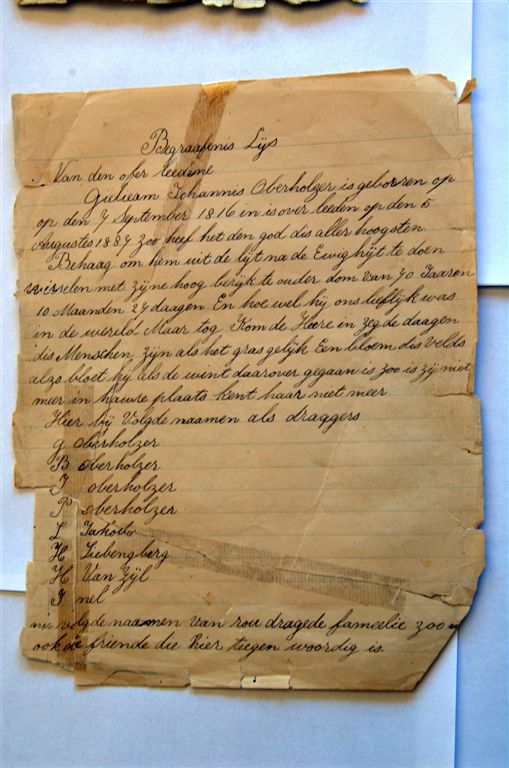 Begraafenis Lijs
Van den ofer leedine
Gieliam Johannis Oberholzer is geborren op
op den 7 September 1816 in is over leeden op den 5
Augustes 1887 zoo heef het den god dis aller hoogsten
Behaag om hem uit de tijt na de Ewig hijt te doen
wisselen met zijne hoog berijk te ouder dom van 70 Jaaren
10 Maanden 27 daagen En hoe wel hij ons lieflijk was
in de wereld Maar tog Kom de Heere in zeg de daagen
dis Menschen zijn als het gras gelijk Een bloem dis velds
alzo bloet hij als de wint daarover gegaan is zoo is zij niet
meer in haure plaats kent haar niet meer
Hier bij Volgde naamen als draggers
G Oberholzer
B Oberholzer
J oberholzer
P oberholzer
L Jakobs
H Liebengberg
H Van Zijl
J nel
nu volgde naamen van rou dragede fameelie zoo
ook de friende die hier teegen woordig is.